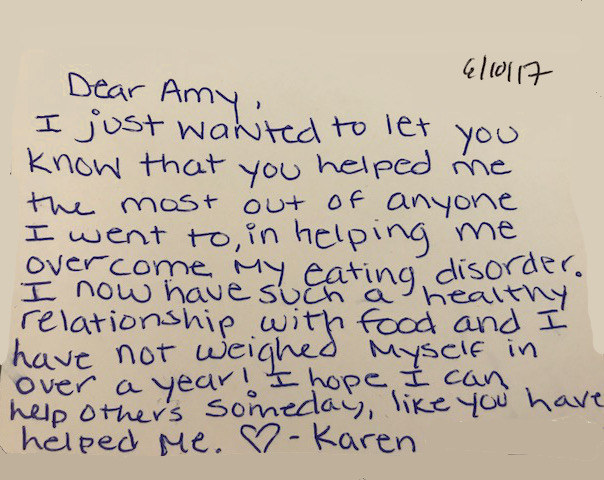 6/10/17
Dear Amy,
I just wanted to let you
know that you helped me
the most out of anyone
I went to, in helping me
overcome my eating disorder.
I now have such a healthy
relationship with food and I
have not weighed myself in
over a year! I hope I can
help others someday, like you have
helped me. ♡ - Karen